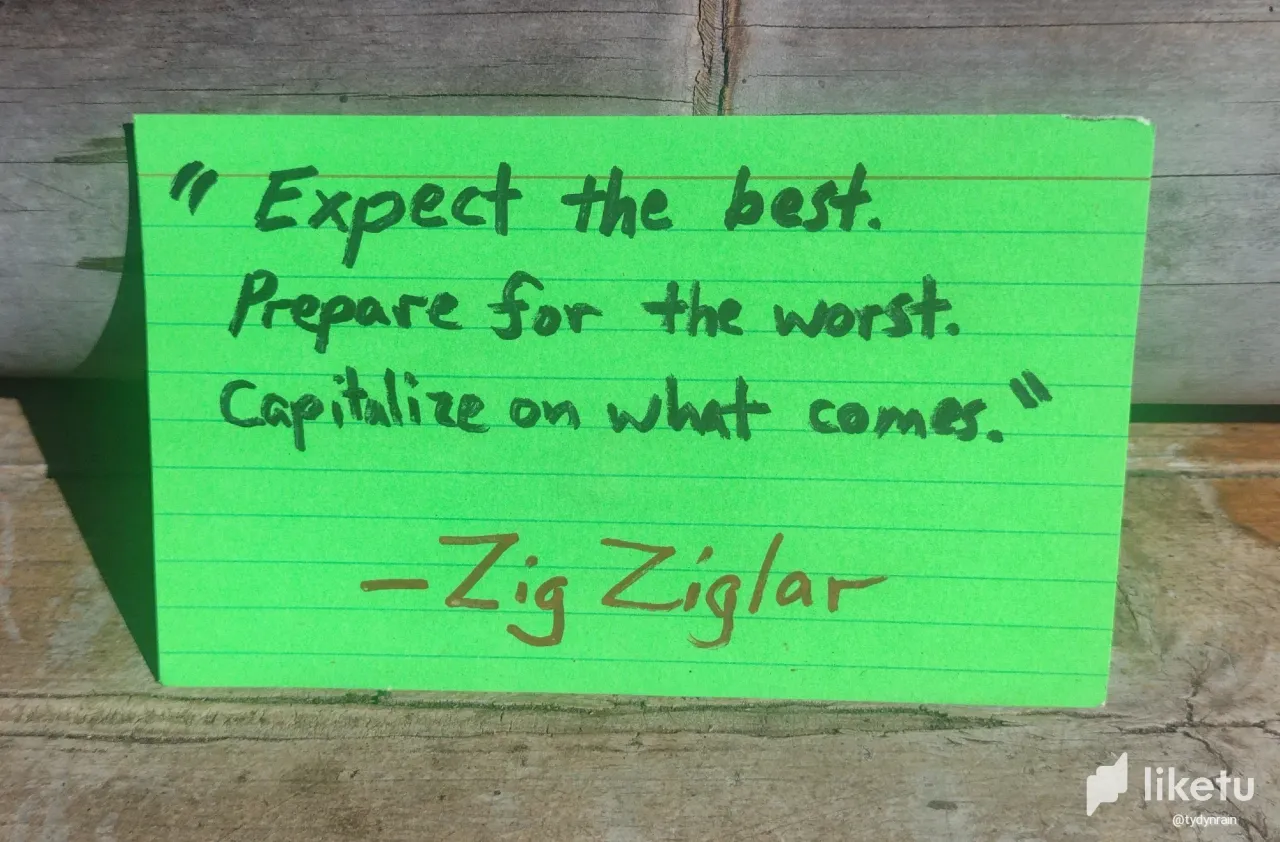 "Expect the best.
Prepare for the worst.
Capitalize on what comes."
-Zig Ziglar
liketu
@tydynrain